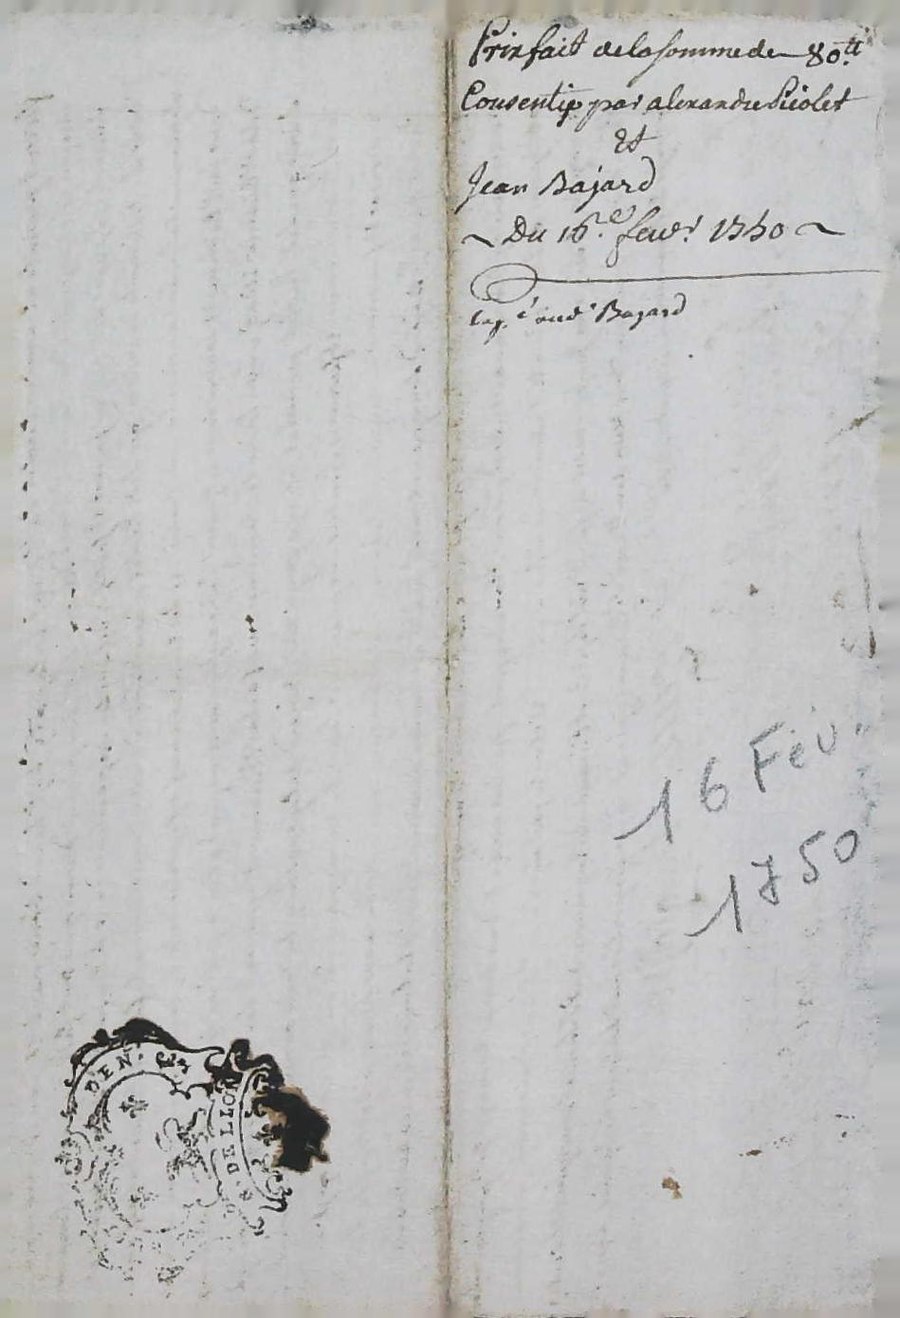 Prixfait de la somme de 80.tt
Consentip par alexandre Piolet
Et
Jean Bajard
~ Du 16.e feuv.r 1750 ~
Bajard
16 Fév.
1750
DEN.
DE LLON